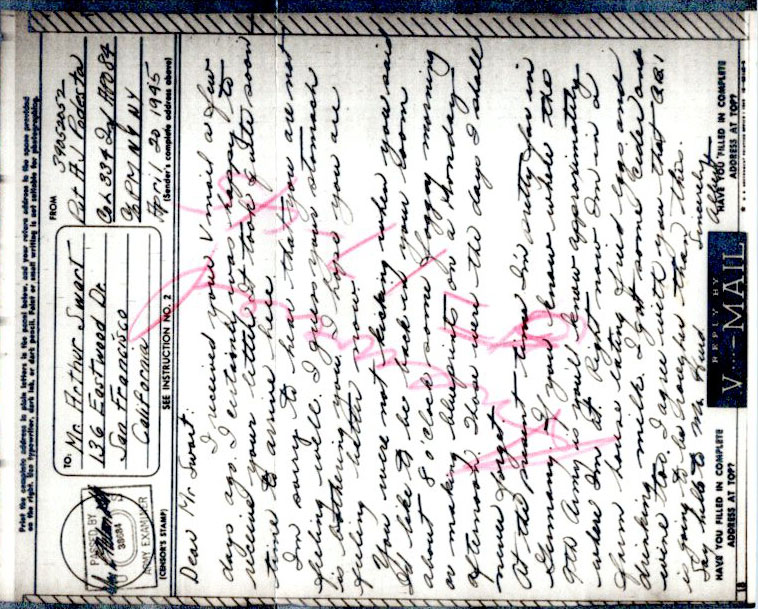 Print the complete address in plain letters in the panel below, and your return address in the space provided
on the right. Use typewriter, dark ink, or dark pencil. Faint or small writing is not suitable for photographing.
TO:
Mr. Arthur Swart
136 Eastwood Dr.
San Francisco
California
FROM
34052052
Pvt A.J.
Co L 334 Inf APO 84
℅ PM NY NY
April 20 1945
(Sender's complete address above)
PASSED BY
38084
ARMY EXAMINER
(CENSOR'S STAMP)
SEE INSTRUCTION NO. 2
Dear Mr. Swart:
I received your V mail a few
days ago. I certainly was happy to
receive your letter. It took quite some
time to arrive here.
I'm sorry to hear that you are not
feeling well. I guess your stomach
is bothering you. I hope you are
feeling better now.
You were not kidding when you said
I'd like to be back in your room
about 8 o'clock some foggy morning
or making blueprints on a Monday
afternoon. Those were the days I shall
never forget.
At the present time I'm in
Germany. If you know where the
9th Army is you'll know approximately
where I'm at. Right now I'm in a
farm house eating fried eggs and
drinking milk. I got some cider and
wine too. I agree with you that
is going to be tougher than this.
Say hello to Mr.
Sincerely
Albert
HAVE YOU FILLED IN COMPLETE
ADDRESS AT TOP?
REPLY BY
V···—MAIL
HAVE YOU FILLED IN COMPLETE
ADDRESS AT TOP?